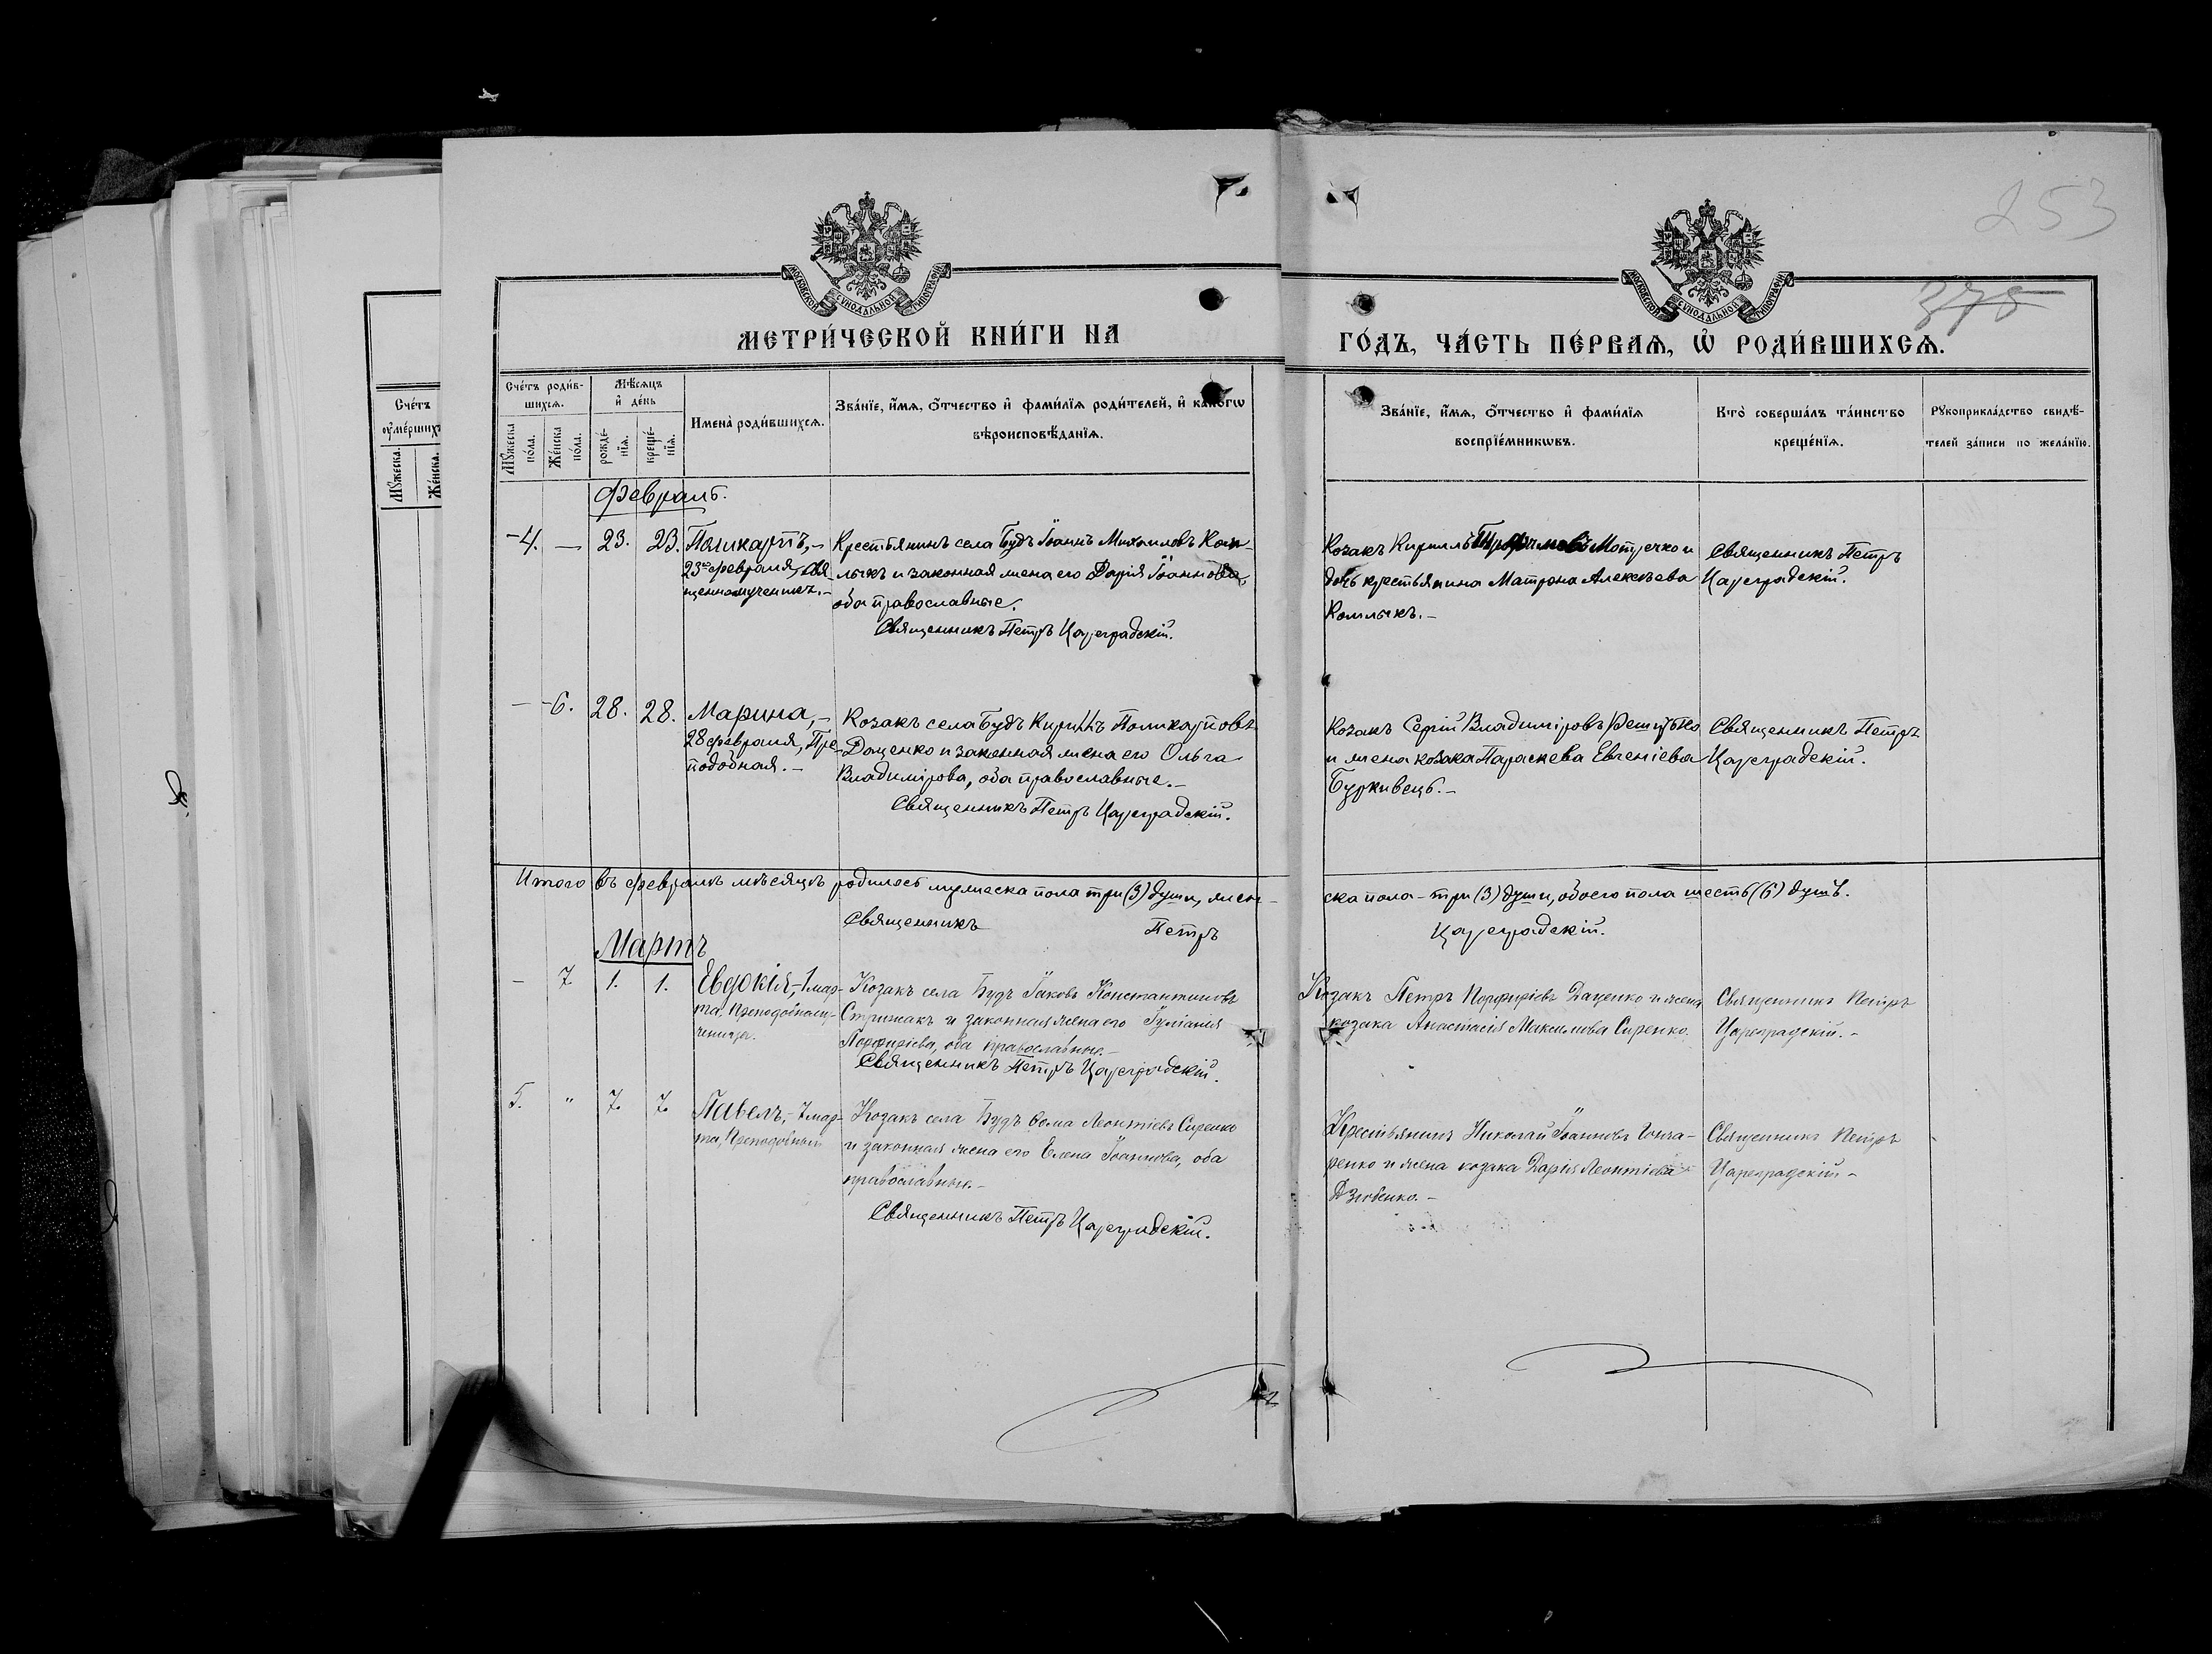 253
375
МОСКОВСКОЙ СѴНОДАЛЬНОЙ ТИПОГРАФІИ
МОСКОВСКОЙ СѴНОДАЛЬНОЙ ТИПОГРАФІИ
МЕТРИ́ЧЕСКОЙ КНИ́ГИ НА
ГО́ДЪ, ЧА́СТЬ ПЕ́РВАѦ, Ѽ РОДИ́ВШИХСѦ.
Сче́тъ
оуме́ршихъ
Мꙋжеска.
Же́нска.
Сче́тъ роди́в-
шихсѧ.
Мꙋжеска
по́ла.
Же́нска
по́ла.
Мѣ́сѧцъ
и҆ де́нь
рожде́-
нїѧ.
креще́-
нїѧ.
И҆мена̀ роди́вшихсѧ.
Зва́нїе, и҆́мѧ, о҆́тчество и҆ фами́лїѧ роди́телей, и҆ како́гѡ
вѣроисповѣ́данїѧ.
Зва́нїе, и҆́мѧ, о҆́тчество и҆ фами́лїѧ
воспрїе́мникѡвъ.
Кто̀ соверша́лъ та́инство
креще́нїѧ.
Рꙋкоприкла́дство свидѣ́-
телей за́писи по жела́нїю.
Февраль.
4. — 23. 23. Поликарпъ,–
23го февраля, Свя-
щенномученикъ.–
Крестьянинъ села Будъ Іоаннъ Михаиловъ Ком-
лыкъ и законная жена его Дарія Іоаннова,
оба православные.
Священникъ Петръ Цареградскій.
Козакъ Кириллъ Трофимовъ и
дочь крестьянина Матрона Алексѣева
Комлыкъ.–
Священникъ Петръ
Цареградскій.
— 6. 28. 28. Марина,–
28 февраля, Пре-
подобная.–
Козакъ села Будъ Кириллъ Поликарповъ
Даценко и законная жена его Ольга
Владимірова, оба православные.–
Священникъ Петръ Цареградскій.
Козакъ Сергій Владиміровъ
и жена козака Параскева Евгеніева
Бурквецъ.–
Священникъ Петръ
Цареградскій.
Итого въ февралѣ мѣсяцѣ родилось мужеска пола три (3) души, жен-
ска пола – три (3) души, обоего пола шесть (6) душъ.
Священникъ Петръ
Цареградскій.
Мартъ
– 7 1. 1. Евдокія,– 1 мар-
та, Преподобному-
ченица.
Козакъ села Будъ Іаковъ Константиновъ
Стрижакъ и законная жена его Іуліанія
Порфиріева, оба православные.–
Священникъ Петръ Цареградскій.
Козакъ Петръ Порфиріевъ Даценко и жена
козака Анастасія Максимова Сиренко.
Священникъ Петръ
Цареградскій.–
5. " 7. 7. Павелъ,– 7 мар-
та, Преподобный
Козакъ села Будъ Ѳома Леонтіевъ Сиренко
и законная жена его Елена Іоаннова, оба
православные.–
Священникъ Петръ Цареградскій.
Крестьянинъ Николай Іоанновъ Гонча-
ренко и жена козака Дарія Леонтіева
Дзюбенко.–
Священникъ Петръ
Цареградскій–